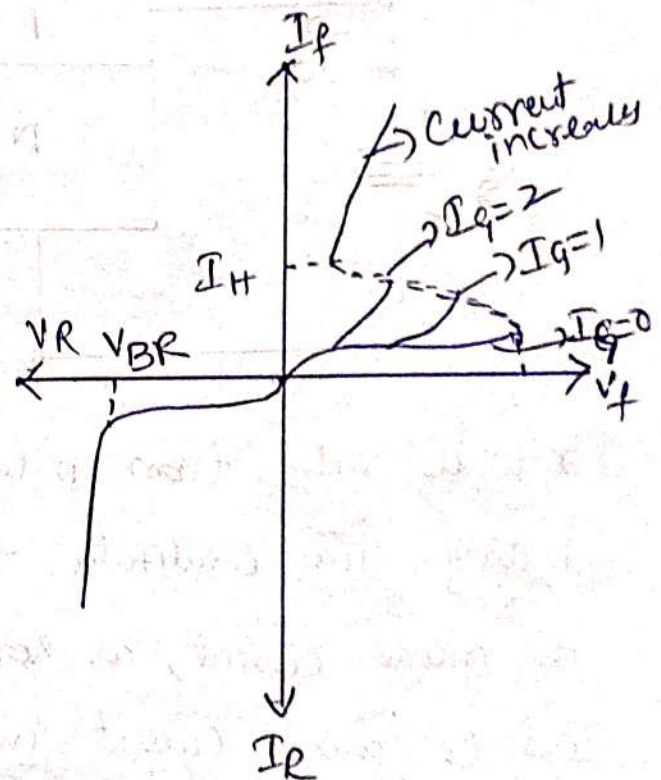 If
Current
increases
IG=2
IG=1
IH
VR VBR
IG=0
Vf
IR